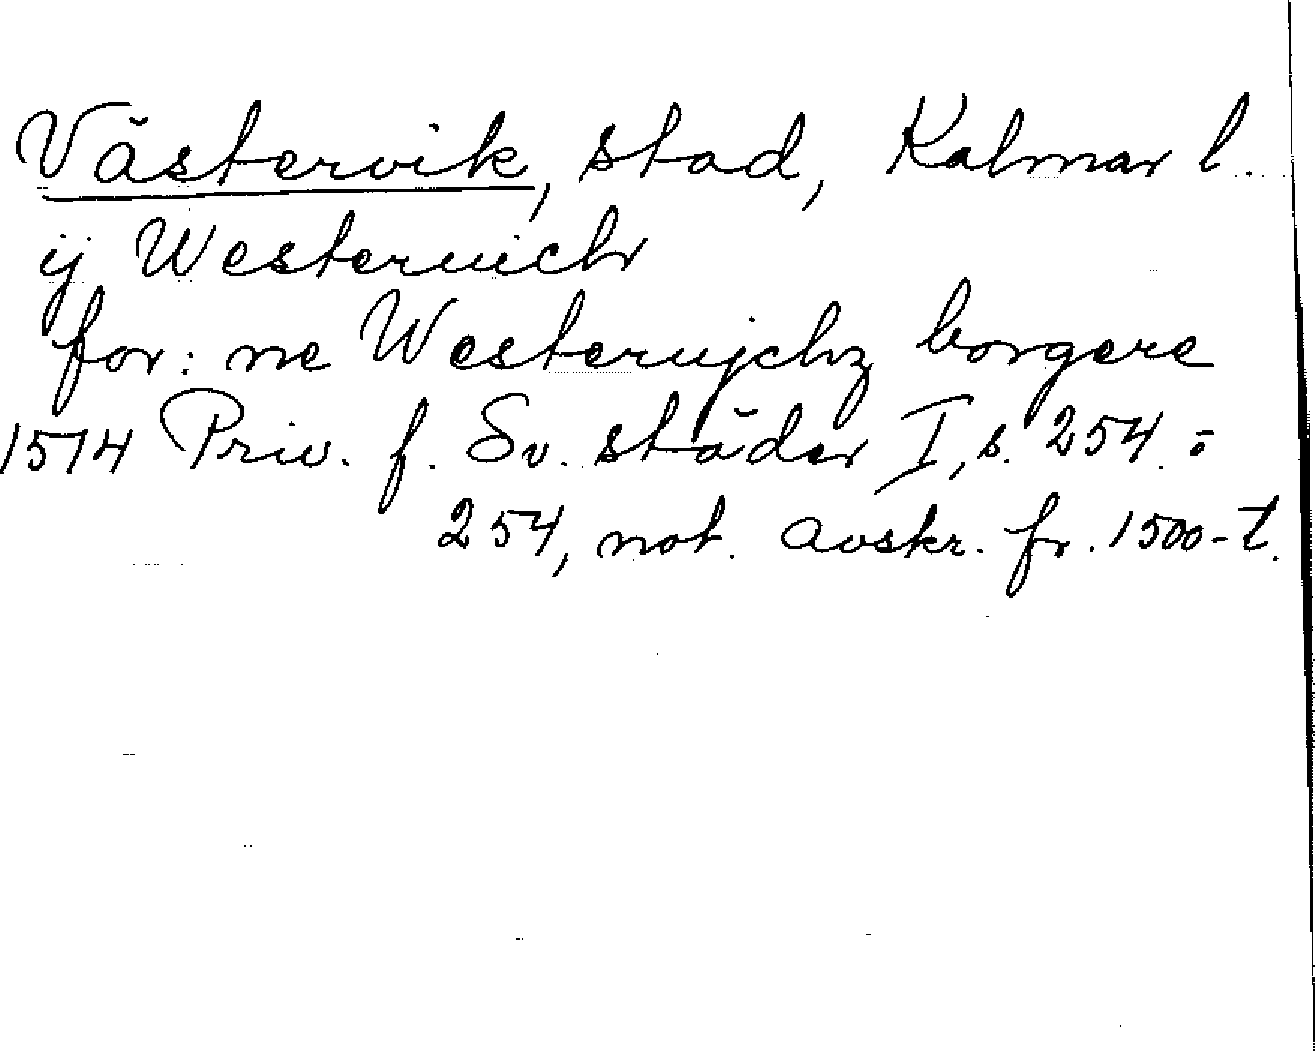 Västervik, stad, Kalmar l.
ij Westeruich
for: ne Westerujchz borgere
1514 Priv. f. Sv. städer I, s. 254.
254, not. avskr. fr. 1500-t.